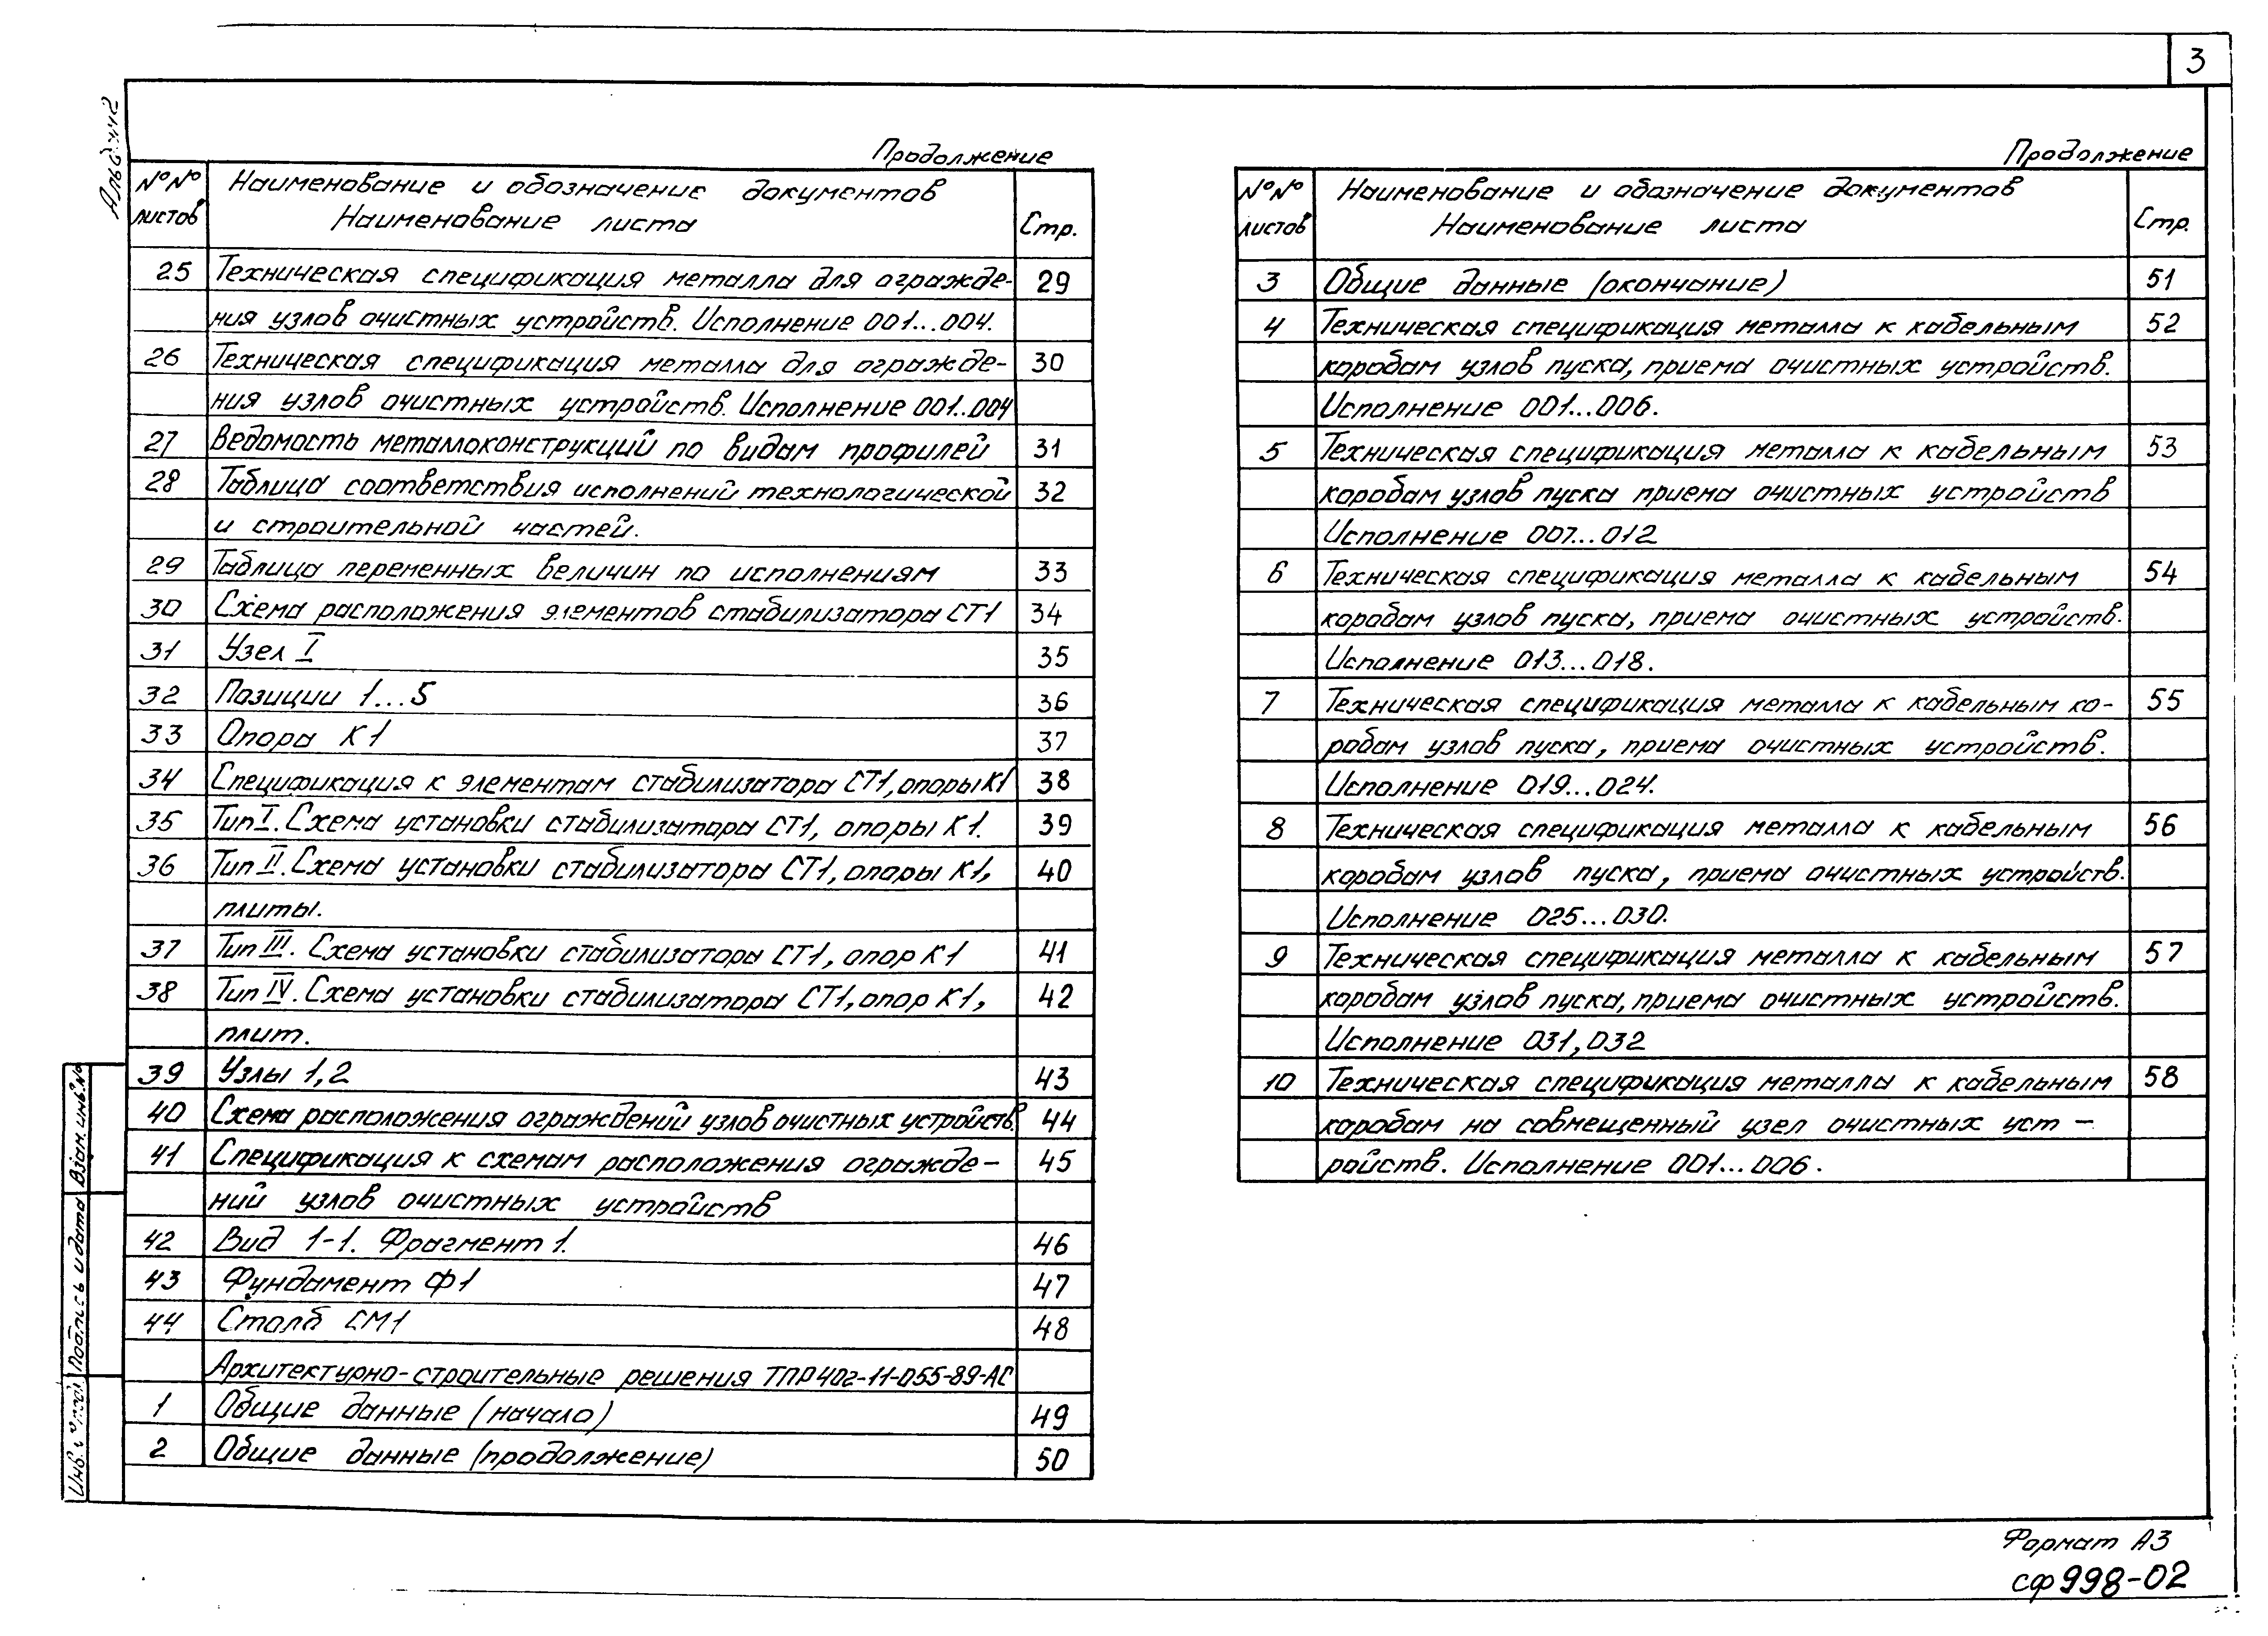 3
Альбом 2
Продолжение
№№ листов
Наименование и обозначение документов
Наименование листа
Стр.
25 Техническая спецификация металла для огражде- 29
ния узлов очистных устройств. Исполнение 001...004.
26 Техническая спецификация металла для огражде- 30
ния узлов очистных устройств. Исполнение 001..004
27 Ведомость металлоконструкций по видам профилей 31
28 Таблица соответствия исполнений технологической 32
и строительной частей.
29 Таблица переменных величин по исполнениям 33
30 Схема расположения элементов стабилизатора СТ1 34
31 Узел I 35
32 Позиции 1...5 36
33 Опора К1 37
34 Спецификация к элементам стабилизатора СТ1, опоры К1 38
35 Тип I. Схема установки стабилизатора СТ1, опоры К1. 39
36 Тип II. Схема установки стабилизатора СТ1, опоры К1, 40
плиты.
37 Тип III. Схема установки стабилизатора СТ1, опор К1 41
38 Тип IV. Схема установки стабилизатора СТ1, опор К1, 42
плит.
39 Узлы 1,2 43
40 Схема расположения ограждений узлов очистных устройств. 44
41 Спецификация к схемам расположения огражде- 45
ний узлов очистных устройств
42 Вид 1-1. Фрагмент 1. 46
43 Фундамент Ф1 47
44 Столб СМ1 48
Архитектурно-строительные решения ТПР 402-11-055-89-АС
1 Общие данные (начало) 49
2 Общие данные (продолжение) 50
Продолжение
№№ листов
Наименование и обозначение документов
Наименование листа
Стр.
3 Общие данные (окончание) 51
4 Техническая спецификация металла к кабельным 52
коробам узлов пуска, приема очистных устройств.
Исполнение 001...006.
5 Техническая спецификация металла к кабельным 53
коробам узлов пуска приема очистных устройств
Исполнение 007...012
6 Техническая спецификация металла к кабельным 54
коробам узлов пуска, приема очистных устройств.
Исполнение 013...018.
7 Техническая спецификация металла к кабельным ко- 55
робам узлов пуска, приема очистных устройств.
Исполнение 019...024.
8 Техническая спецификация металла к кабельным 56
коробам узлов пуска, приема очистных устройств.
Исполнение 025...030.
9 Техническая спецификация металла к кабельным 57
коробам узлов пуска, приема очистных устройств.
Исполнение 031, 032
10 Техническая спецификация металла к кабельным 58
коробам на совмещенный узел очистных уст -
ройств. Исполнение 001...006.
Взам. инв. №
Подпись и дата
Инв. № подл.
Формат А3
сф 998-02